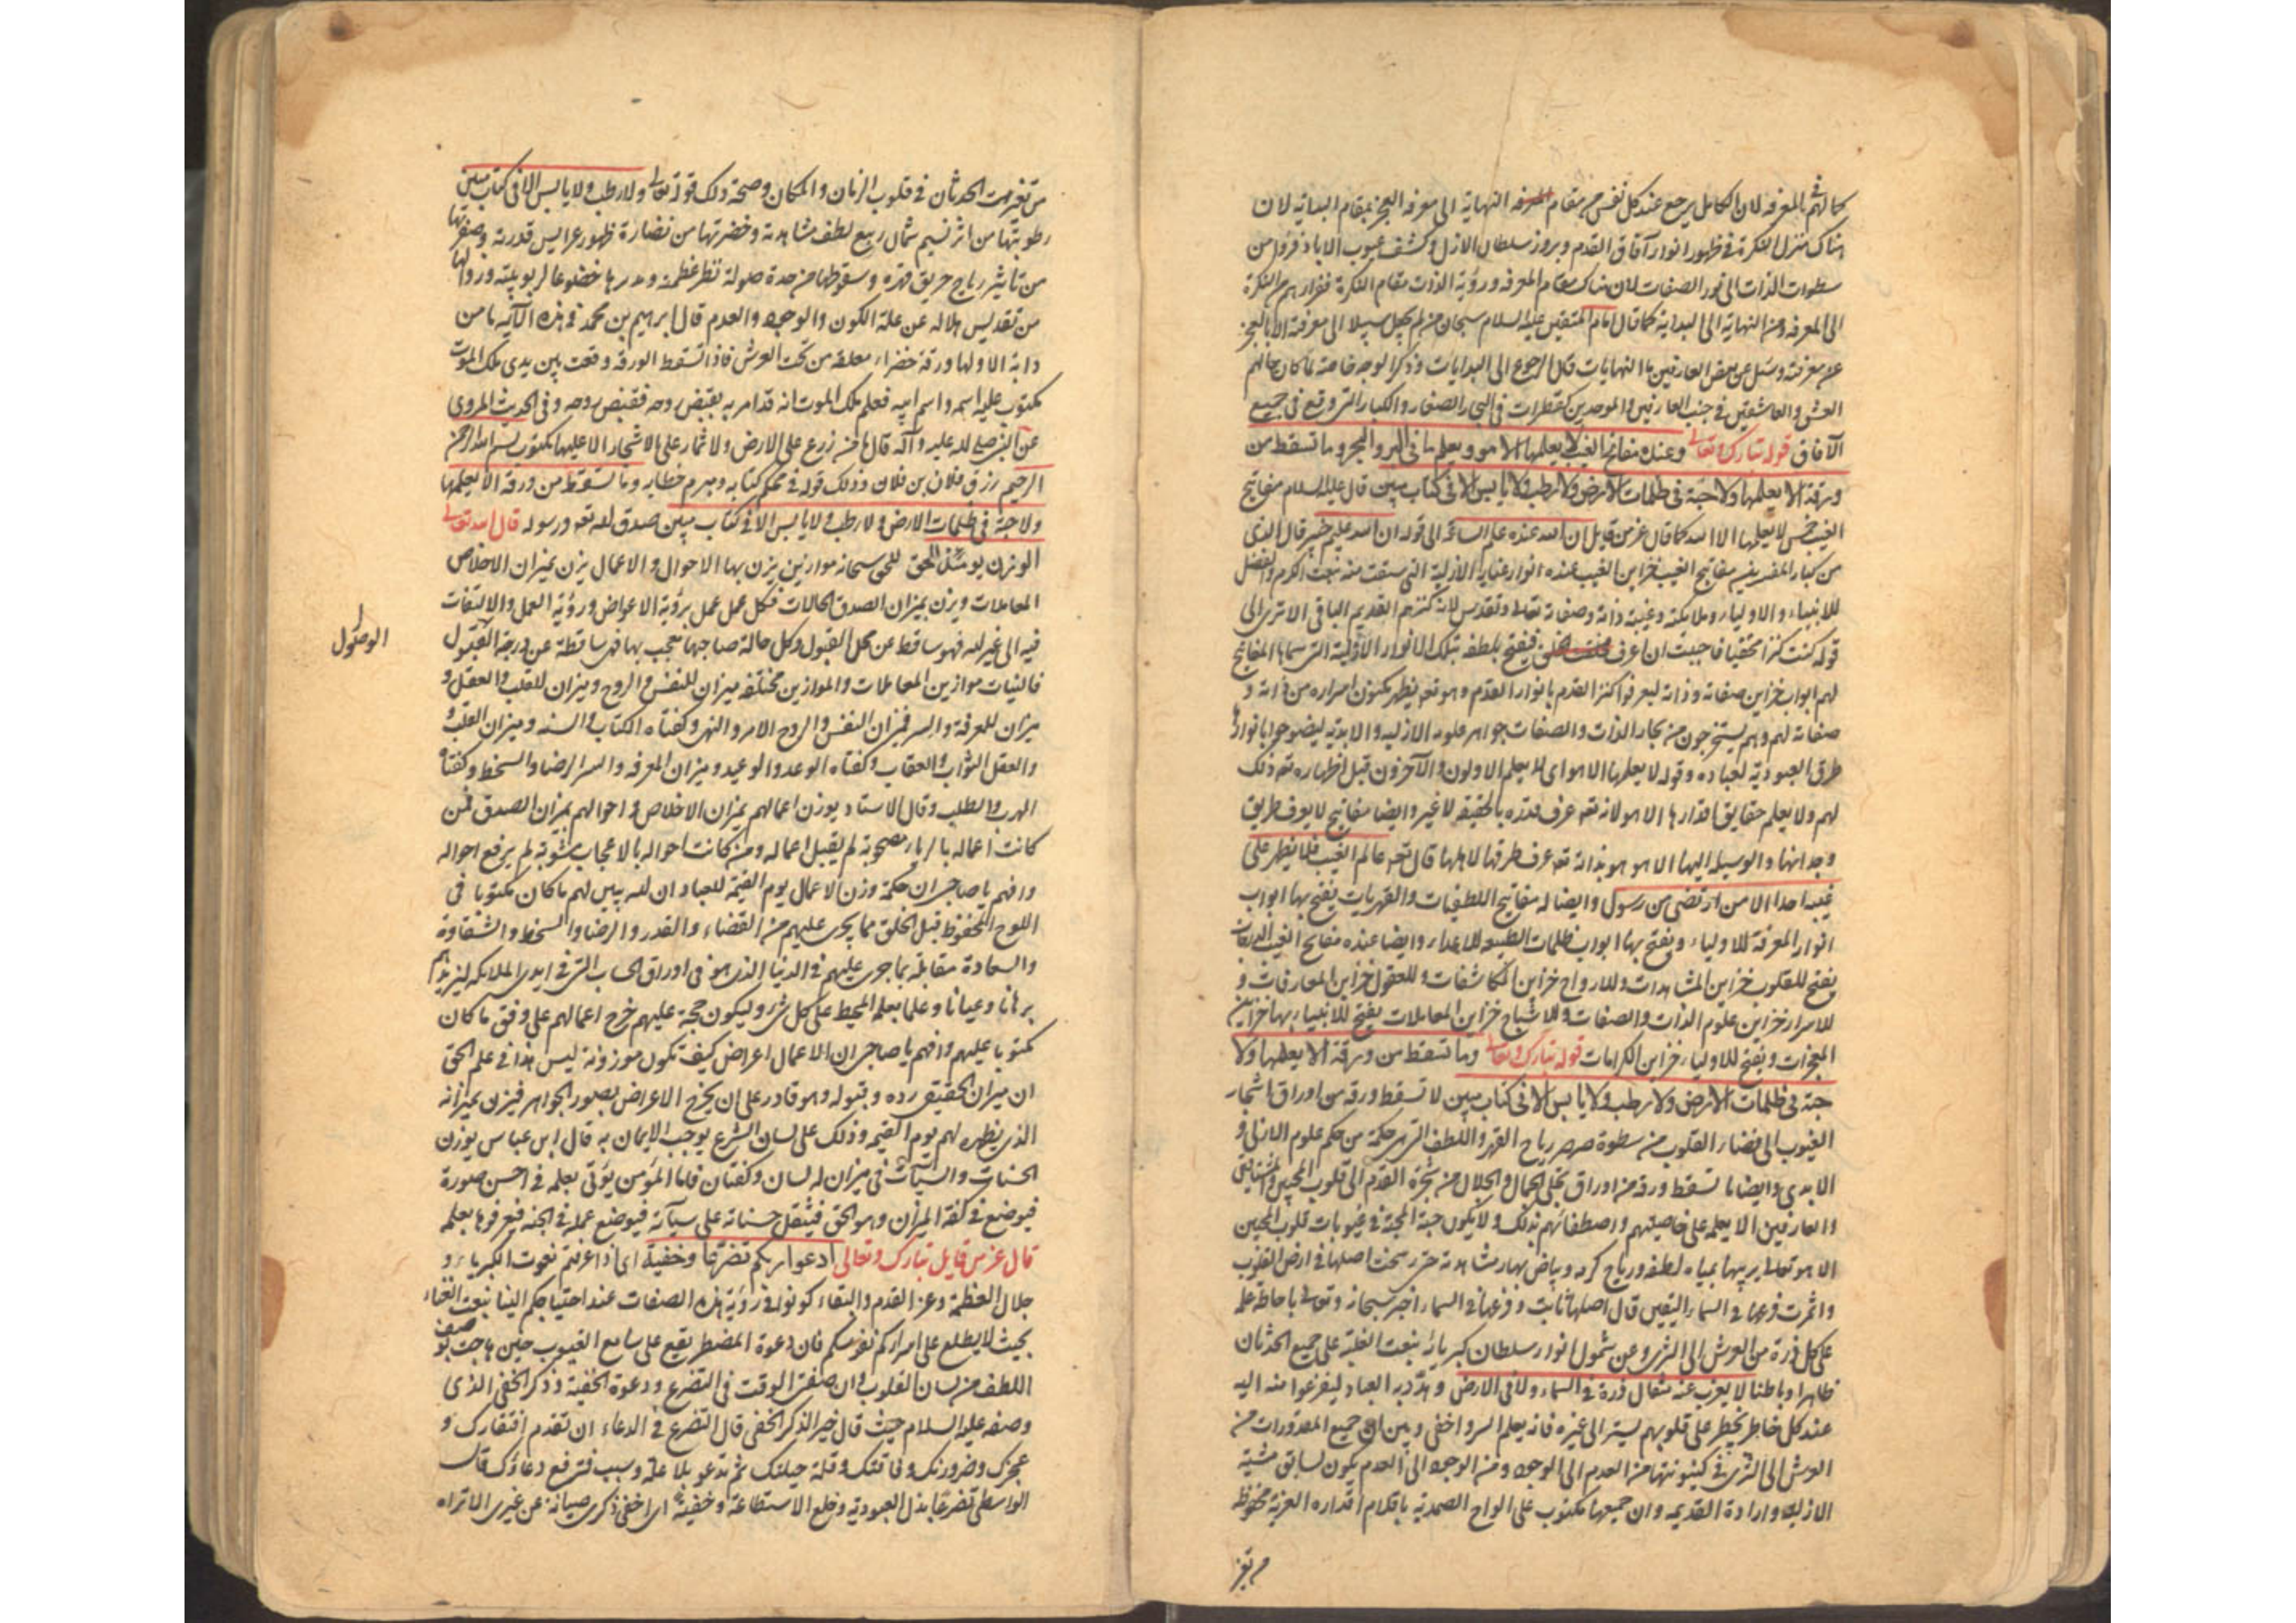 كمالهم في المعرفه لان الكامل يرجع عند كل نفس من مقام النهاية الى معرفه العجز بمقام البداية لان
هناك منزل النكرة في ظهور انوار آفاق القدم وبروز سلطان الازل وكشف عيوب الاباد ففروا من
سطوات الذات الى نور الصفات لان هناك مقام المعرفه ورؤية الذات مقام النكرة ففرارهم من النكرة
الى المعرفه ومن النهاية الى البداية كما قال امام المتقين عليه السلام سبحان من لم يجعل سبيلا الى معرفته الا بالعجز
عن معرفته وسئل عن بعض العارفين ما النهايات قال الرجوع الى البدايات وذكر الوجه خاصة لما كان حالهم
العشق والعاشقين في جنب العارفين والموحدين كقطرات في البحار الصغار والكبار التي وقع في جميع
الآفاق قوله تبارك وتعالى وعنده مفاتح الغيب لا يعلمها الا هو ويعلم ما في البر والبحر وما تسقط من
ورقة الا يعلمها ولا حبة في ظلمات الارض ولا رطب ولا يابس الا في كتاب مبين قال عليه السلام مفاتيح
الغيب خمس لا يعلمها الا الله كما قال عز من قايل ان الله عنده علم الساعة الى قوله ان الله عليم خبير قال الذي
من كبار المفسرين مفاتيح الغيب خزاين الغيب عنده انوار عنايته الازلية التي سبقت منه بنعت الكرم والفضل
للانبياء والاولياء وملائكته وغيبة ذاته وصفاته تعالى وتقدس لانه كنزهم القديم الباقي الا ترى الى
قوله كنت كنزا مخفيا فاحببت ان اعرف فيفتح بلطفه بتلك الانوار الازلية التي سماها المفاتيح
لهم ابواب خزاين صفاته وذاته ليعرفوا كنز القدم بانوار القدم وهو تعه يظهر مكنون اسراره من ذاته و
صفاته لهم وهم يستخرجون من بحار الذات والصفات جواهر علومه الازليه والابديه ليضوحوا بانوارها
طرق العبودية لعباده وقوله لا يعلمها الا هو اى لا يعلم الاولون والآخرون قبل اظهاره تعه ذلك
لهم ولا يعلم حقايق اقدارها الا هو لانه تعه عرف قدره بالحقيقه لا غير وايضا مفاتيح لا يعرف طريق
وجدانها والوسيله اليها الا هو هو بذاته تعه عرف طرقها لاهلها قال تعه عالم الغيب فلا يظهر على
غيبه احدا الا من ارتضى من رسول وايضا له مفاتيح اللطفيات والقهريات يفتح بها ابواب
انوار المعرفة للاولياء ويفتح بها ابواب ظلمات الطبيعه للاعداء وايضا عنده مفاتح الغيب
يفتح للقلوب خزاين المشاهدات وللارواح خزاين المكاشفات وللعقول خزاين المعارفات و
للاسرار خزاين علوم الذات والصفات وللاشباح خزاين المعاملات يفتح للانبياء بها خزاين
المعجزات ويفتح للاولياء خزاين الكرامات قوله تبارك وتعالى وما تسقط من ورقة الا يعلمها ولا
حبة في ظلمات الارض ولا رطب ولا يابس الا في كتاب مبين لا تسقط ورقة من اوراق اشجار
الغيوب الى فضاء القلوب من سطوة صرصر رياح القهر واللطف التي حكمة من حكم علوم الازلي و
الابدي وايضا ما تسقط ورقة من اوراق تجلى الجمال والجلال من شجرة القدم الى قلوب المحبين والمشتاقين
والعارفين الا يعلم على خاصيتهم واصطفائهم بذلك ولا يكون حبة المحبة في غيوبات قلوب المحبين
الا هو تعالى يربيها بمياه لطفه ورياح كرمه ورياض بهار مشاهدته حتى رسخت اصلها في ارض القلوب
واثمرت فرعها في السماء اليقين قال اصلها ثابت وفرعها في السماء اخبر سبحانه وتعالى باحاطة علمه
على كل ذرة من العرش الى الثرى وعن شمول انوار سلطان كبريائه بنعت الغلبة على جميع الحدثان
ظاهرا وباطنا لا يعزب عنه مثقال ذرة في السماء ولا في الارض وهدد به العباد ليفزعوا منه اليه
عند كل خاطر يخطر على قلوبهم يسير الى غيره فانه يعلم السر واخفى وبين ان جميع المقدورات من
العرش الى الثرى في كينونتها من العدم الى الوجود ومن الوجود الى العدم يكون بسابق مشية
الازلية وارادة القديمه وان جميعها مكتوب على الواح الصمدية باقلام اقداره العزية محفوظة
من تغير
من تغير سمت الحدثان في قلوب الزمان والمكان وصحة ذلك قوله تعالى ولا رطب ولا يابس الا في كتاب مبين
رطوبتها من اثر نسيم شمال ربيع لطف مشاهدته وخضرتها من نضارة ظهور عرايس قدرته وصفرتها
من تاثير رياح حريق قهره وسقوطها من حدة صولة نظر عظمته ومدرها خضوعا لربوبيته وزوالها
من تقديس جلاله عن علة الكون والوجود والعدم قال ابرهيم بن محمد في هذه الآية ما من
دابة الا ولها ورقة خضراء معلقه من تحت العرش فاذا تسقط الورقه وقعت بين يدى ملك الموت
مكتوب عليه اسمه واسم ابيه فعلم ملك الموت انه قد امر به بقبض روحه فقبض روحه وفى الحديث المروى
عن النبي صلى الله عليه وآله قال ما من زرع على الارض ولا ثمار على الاشجار الا عليها مكتوب بسم الله الرحمن
الرحيم رزق فلان بن فلان وذلك قوله في محكم كتابه ومبرم خطابه وما تسقط من ورقة الا يعلمها
ولا حبة في ظلمات الارض ولا رطب ولا يابس الا في كتاب مبين صدق الله تعه ورسوله قال الله تعالى
الوزن يومئذ الحق للحق سبحانه موازين يزن بها الاحوال والاعمال يزن بميزان الاخلاص
المعاملات ويزن بميزان الصدق الحالات فكل عمل عمل برؤية الاعواض ورؤية العمل والالتفات
فيه الى غير الله فهو ساقط عن محل القبول وكل حالة صاحبها معجب بها فهى ساقطة عن درجة القبول
الوصول
فالنيات موازين المعاملات والموازين مختلفه ميزان للنفس والروح وميزان للقلب والعقل و
ميزان للمعرفة والسر فميزان النفس والروح الامر والنهى وكفتاه الكتاب والسنه وميزان القلب و
والعقل الثواب والعقاب وكفتاه الوعد والوعيد وميزان المعرفه والسر الرضا والسخط وكفتاه
الهرب والطلب وقال الاستاد يوزن اعمالهم بميزان الاخلاص واحوالهم بميزان الصدق فمن
كانت اعماله بالرياء مصحوبة لم يقبل اعماله ومن كانت احواله بالاعجاب مشوبة لم يرفع احواله
وافهم يا صاحبى ان حكمة وزن الاعمال يوم القيمة للعباد ان الله يبين لهم ما كان مكتوبا فى
اللوح المحفوظ قبل الخلق مما يجرى عليهم من القضاء والقدر والرضا والسخط والشقاوة
والسعادة مقابلة بما جرى عليهم في الدنيا الذى هو فى اوراق الحساب التى في ايدى الملائكه ليزيدهم
برهانا وعيانا وعلما بعلمه المحيط على كل شىء وليكون حجة عليهم خرج اعمالهم على وفق ما كان
مكتوبا عليهم وافهم يا صاحبى ان الاعمال اعراض كيف تكون موزونة ليس هذا في علم الحق
ان ميزان الحقيقى رده وقبوله وهو قادر على ان يخرج الاعراض بصور الجواهر فيزن بميزانه
الذى يظهره لهم يوم القيمه وذلك على لسان الشرع يوجب الايمان به قال ابن عباس يوزن
الحسنات والسيآت فى ميزان له لسان وكفتان فاما المؤمن يؤتى بعلمه في احسن صورة
فيوضع في كفة الميزان وهو الحق فيثقل حسناته على سيآته فيوضع عمله في الجنه فيعرفوها بعلمه
قال عز من قايل تبارك وتعالى ادعوا ربكم تضرعا وخفية اى اذا عرفتم نعوت الكبرياء و
جلال العظمة وعز القدم والبقاء كونوا في رؤية هذه الصفات عند احتياجكم الينا بنعت الفناء
بحيث لا يطلع على اسراركم نفوسكم فان دعوة المضطر يقع على سامع الغيوب حين هاجت بوصف
اللطف من لسان القلوب وان صفتى الوقت في التضرع ودعوة الخفية وذكر الخفى الذى
وصفه عليه السلام حيث قال خير الذكر الخفى قال التضرع في الدعاء ان تقدم افتقارك و
عجزك وضرورتك وفاقتك وقلة حيلتك ثم تدعو بلا علة وسبب فترفع دعاؤك قال
الواسطى تضرعا بذل العبودية وخلع الاستطاعة وخفية اى اخفى ذكرى صيانة عن غيرى الا تراه